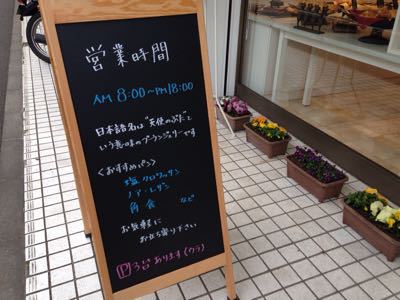 営業時間
AM 8:00~PM 18:00
日本語名は"天使のぶたごと
いう意味のブーランジェリーです
<おすすめパン>
塩クロワッサン
ノア・レザン
角食 など
お気軽に
お立ち寄り下さい
P3台あります(ウラ)